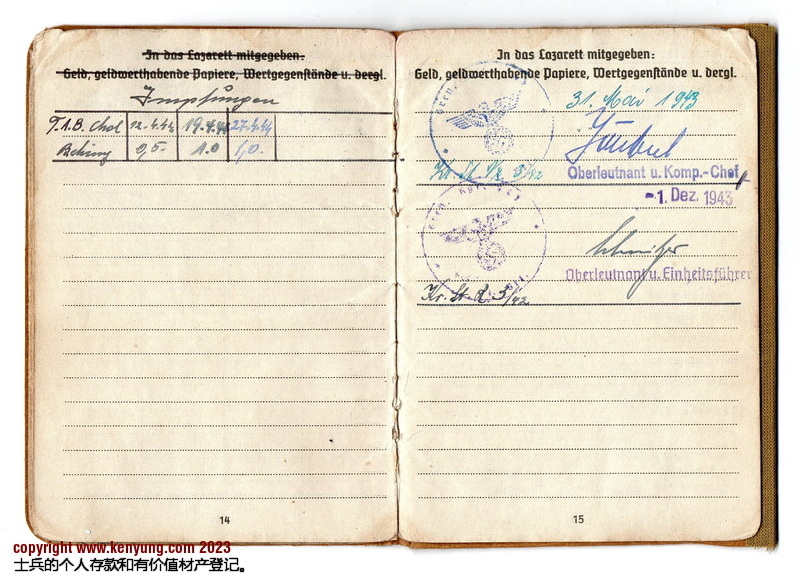 In das Lazarett mitgegeben:
Geld, geldwerthabende Papiere, Wertgegenstände u. dergl.
Impfungen
T.A.B. Chol 12.4.44 19.4.44 27.4.44
Behring 0,5. 1.0 1,0.
14
In das Lazarett mitgegeben:
Geld, geldwerthabende Papiere, Wertgegenstände u. dergl.
31. Mai 1943
Oberleutnant u. Komp.-Chef
-1. Dez. 1943
Oberleutnant u. Einheitsführer
15
copyright www.kenyung.com 2023
士兵的个人存款和有价值材产登记。